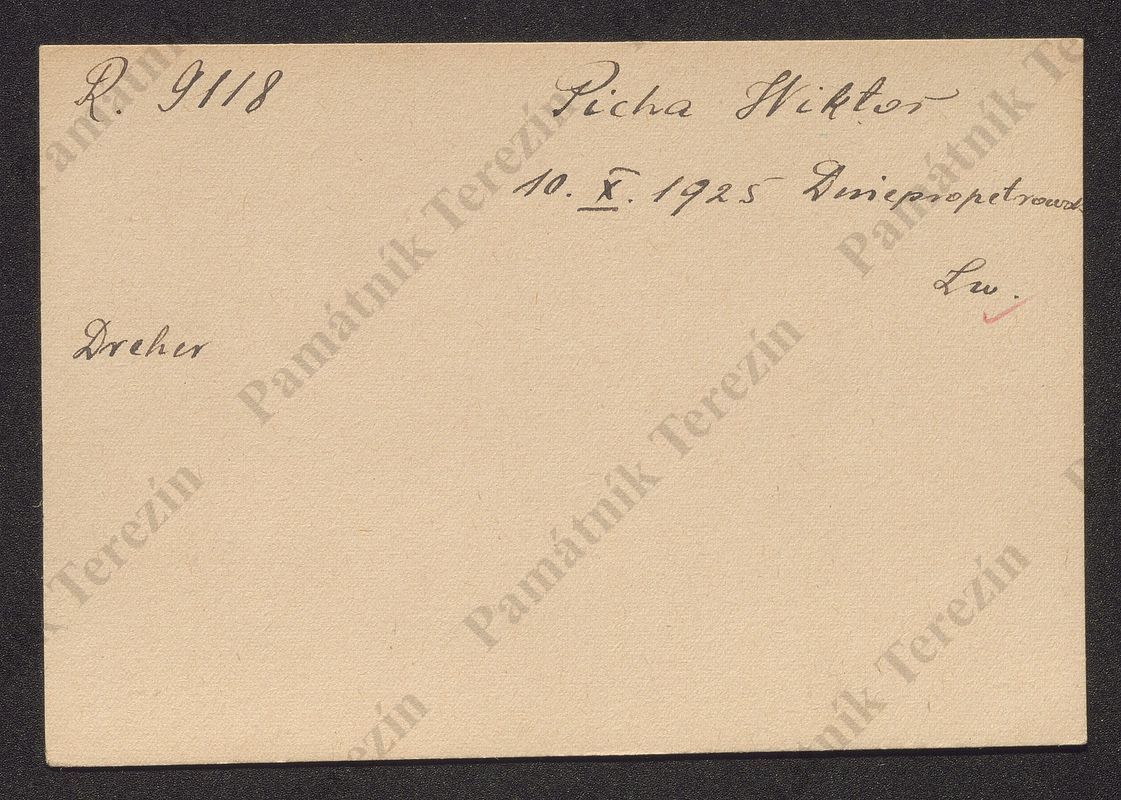 R. 9118 Picha Wiktor
10. X. 1925 Dniepropetrowsk
Lw.
Dreher
Památník Terezín
Památník Terezín
Památník Terezín
Památník Terezín
Památník Terezín